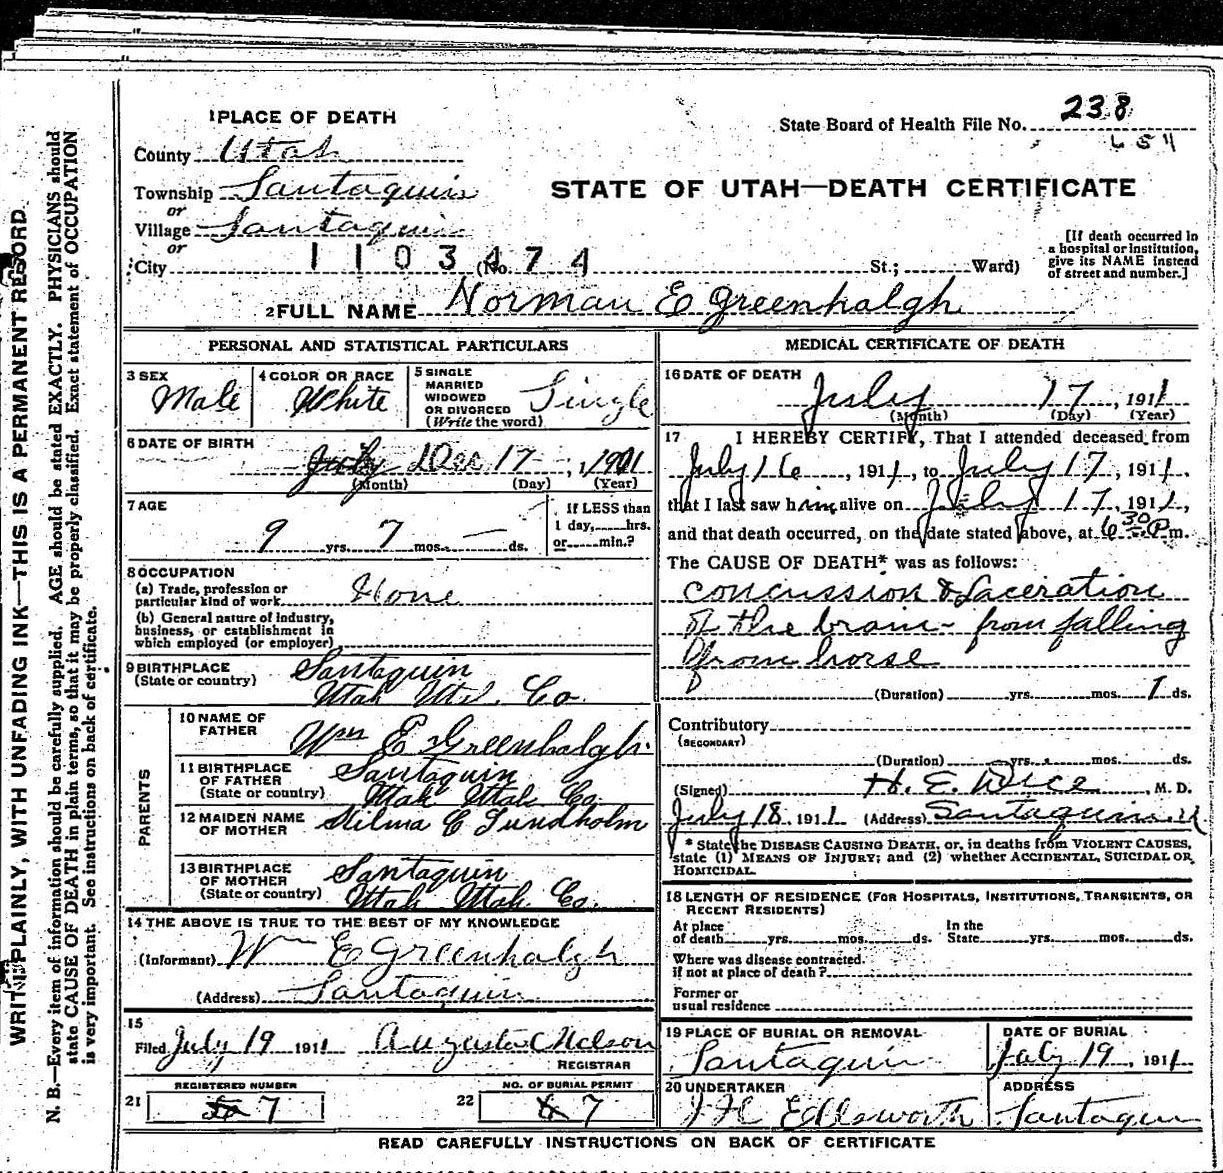 1 PLACE OF DEATH
State Board of Health File No. 238
654
County Utah
Township Santaquin
or
Village Santaquin
or
City 1103474 (No. St.; Ward)
STATE OF UTAH—DEATH CERTIFICATE
[If death occurred in
a hospital or institution,
give its NAME instead
of street and number.]
2 FULL NAME Norman E Greenhalgh
PERSONAL AND STATISTICAL PARTICULARS
3 SEX
Male
4 COLOR OR RACE
White
5 SINGLE
MARRIED
WIDOWED
OR DIVORCED
(Write the word)
Single
6 DATE OF BIRTH
July Dec 17, 1901
(Month) (Day) (Year)
7 AGE
9 yrs. 7 mos. — ds.
If LESS than
1 day, hrs.
or min.?
8 OCCUPATION
(a) Trade, profession or
particular kind of work None
(b) General nature of industry,
business, or establishment in
which employed (or employer)
9 BIRTHPLACE
(State or country)
Santaquin
Utah Co.
PARENTS
10 NAME OF
FATHER
Wm E Greenhalgh
11 BIRTHPLACE
OF FATHER
(State or country)
Santaquin
Utah Utah Co
12 MAIDEN NAME
OF MOTHER
C Lundholm
13 BIRTHPLACE
OF MOTHER
(State or country)
Santaquin
Utah Utah Co.
14 THE ABOVE IS TRUE TO THE BEST OF MY KNOWLEDGE
(Informant) Wm E Greenhalgh
(Address) Santaquin
15
Filed July 19 1911 Augusta Nelson
REGISTRAR
REGISTERED NUMBER
21 7
NO. OF BURIAL PERMIT
22 7
MEDICAL CERTIFICATE OF DEATH
16 DATE OF DEATH
July 17, 1911
(Month) (Day) (Year)
17 I HEREBY CERTIFY, That I attended deceased from
July 16, 1911, to July 17, 1911,
that I last saw him alive on July 17, 1911,
and that death occurred, on the date stated above, at 6 30 P m.
The CAUSE OF DEATH* was as follows:
concussion & laceration
of the brain - from falling
from horse
(Duration) yrs. mos. 1 ds.
Contributory
(SECONDARY)
(Duration) yrs. mos. ds.
(Signed) H. E. , M. D.
July 18, 1911 (Address) Santaquin. U
* State the DISEASE CAUSING DEATH, or, in deaths from VIOLENT CAUSES,
state (1) MEANS OF INJURY; and (2) whether ACCIDENTAL, SUICIDAL OR
HOMICIDAL.
18 LENGTH OF RESIDENCE (FOR HOSPITALS, INSTITUTIONS, TRANSIENTS, OR
RECENT RESIDENTS)
At place
of death yrs. mos. ds.
In the
State yrs. mos. ds.
Where was disease contracted.
if not at place of death?
Former or
usual residence
19 PLACE OF BURIAL OR REMOVAL
Santaquin
DATE OF BURIAL
July 19, 1911
20 UNDERTAKER
ADDRESS
Santaquin
READ CAREFULLY INSTRUCTIONS ON BACK OF CERTIFICATE
WRITE PLAINLY, WITH UNFADING INK—THIS IS A PERMANENT RECORD
N. B.—Every item of information should be carefully supplied. AGE should be stated EXACTLY. PHYSICIANS should
state CAUSE OF DEATH in plain terms, so that it may be properly classified. Exact statement of OCCUPATION
is very important. See instructions on back of certificate.